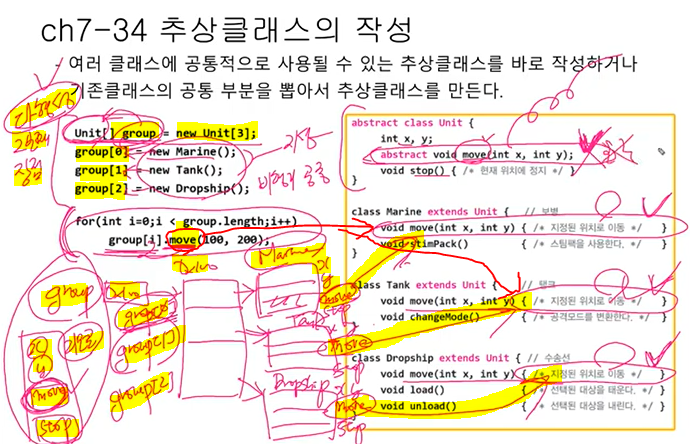 ch7-34 추상클래스의 작성
- 여러 클래스에 공통적으로 사용될 수 있는 추상클래스를 바로 작성하거나
기존클래스의 공통 부분을 뽑아서 추상클래스를 만든다.
다형성
장점
Unit[] group = new Unit[3];
group[0] = new Marine();
group[1] = new Tank();
group[2] = new Dropship();
for(int i=0;i < group.length;i++)
group[i].move(100, 200);
abstract class Unit {
int x, y;
abstract void move(int x, int y);
void stop() { /* 현재 위치에 정지 */ }
}
class Marine extends Unit { // 보병
void move(int x, int y) { /* 지정된 위치로 이동 */ }
void stimPack() { /* 스팀팩을 사용한다. */ }
}
class Tank extends Unit { // 탱크
void move(int x, int y) { /* 지정된 위치로 이동 */ }
void changeMode() { /* 공격모드를 변환한다. */ }
}
class Dropship extends Unit { // 수송선
void move(int x, int y) { /* 지정된 위치로 이동 */ }
void load() { /* 선택된 대상을 태운다. */ }
void unload() { /* 선택된 대상을 내린다. */ }
}
group
group[1]
group[2]
Marine
x
y
move
stop
Tank
move
stop
Dropship
move
stop
y
move
stop